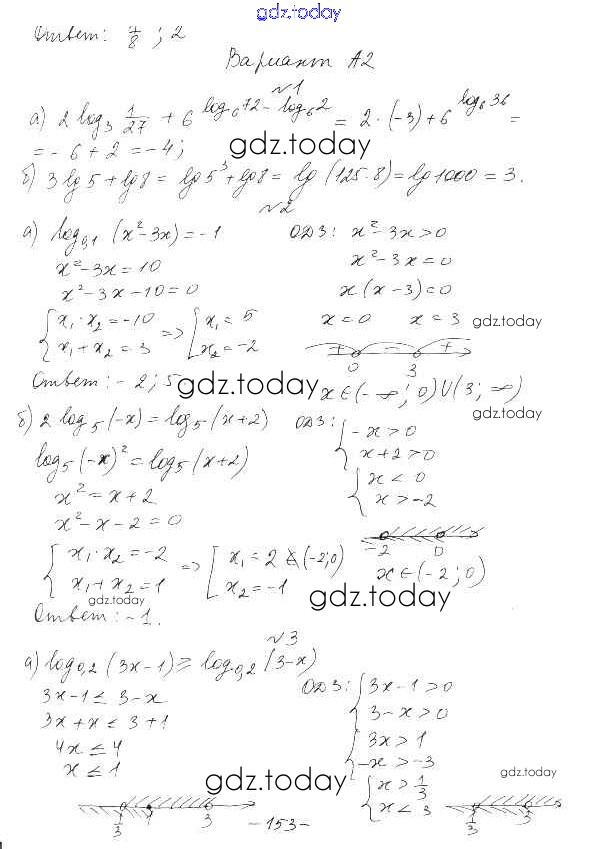 gdz.today
Ответ: 7/8 ; 2
Вариант А2
№1
а) 2 log₃ 1/27 + 6^(log₆72 - log₆2) = 2·(-3) + 6^(log₆36) =
= -6 + 2 = -4;
gdz.today
б) 3 lg 5 + lg 8 = lg 5³ + lg 8 = lg (125·8) = lg 1000 = 3.
№2
а) log₀,₁ (x² - 3x) = -1 ОДЗ: x² - 3x > 0
x² - 3x = 10 x² - 3x = 0
x² - 3x - 10 = 0 x(x - 3) = 0
{ x₁·x₂ = -10 => [ x₁ = 5 x = 0 x = 3 gdz.today
x₁ + x₂ = 3 x₂ = -2 + - +
0 3
Ответ: -2; 5 gdz.today x ∈ (-∞; 0) ∪ (3; ∞)
gdz.today
б) 2 log₅ (-x) = log₅ (x+2) ОДЗ: { -x > 0
x + 2 > 0
log₅ (-x)² = log₅ (x+2) { x < 0
x² = x + 2 x > -2
x² - x - 2 = 0
-2 0
{ x₁·x₂ = -2 => [ x₁ = 2 ∉ (-2; 0) x ∈ (-2; 0)
x₁ + x₂ = 1 x₂ = -1
gdz.today gdz.today
Ответ: -1.
№3
а) log₀,₂ (3x - 1) ≥ log₀,₂ (3 - x)
3x - 1 ≤ 3 - x ОДЗ: { 3x - 1 > 0
3x + x ≤ 3 + 1 3 - x > 0
4x ≤ 4 { 3x > 1
x ≤ 1 -x > -3
gdz.today { x > 1/3 gdz.today
x < 3
1/3 1 3 1/3 3
- 153 -